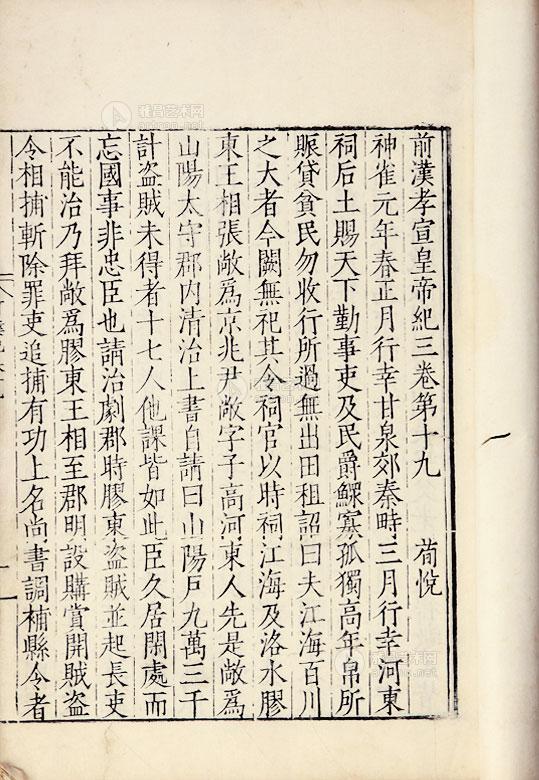 前漢孝宣皇帝紀三卷第十九 荀悅
神雀元年春正月行幸甘泉郊泰畤三月行幸河東
祠后土賜天下勤事吏及民爵鰥寡孤獨高年帛所
賑貸貧民勿收行所過無出田租詔曰夫江海百川
之大者今闕無祀其令祠官以時祠江海及洛水膠
東王相張敞爲京兆尹敞字子高河東人先是敞爲
山陽太守郡內清治上書自請曰山陽戶九萬三千
計盜賊未得者十七人他課皆如此臣久居閑處而
忘國事非忠臣也請治劇郡時膠東盜賊並起長吏
不能治乃拜敞爲膠東王相至郡明設購賞開賊盜
令相捕斬除罪吏追捕有功上名尚書調補縣令者
雅昌艺术网
artron.net